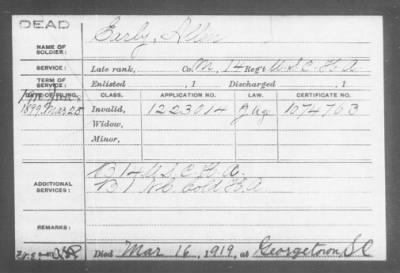 DEAD
NAME OF SOLDIER: Early, Allen
SERVICE: Late rank, Co. M, 14 Reg't U.S.C.H.A
TERM OF SERVICE: Enlisted , 1 Discharged , 1
DATE OF FILING. CLASS. APPLICATION NO. LAW. CERTIFICATE NO.
1899, Mar 25 Invalid, 1223014 1074763
Widow,
Minor,
ADDITIONAL SERVICES: B 14 U.S.C.H.A.
B 1 N.C. Cold H.A
REMARKS:
Died Mar 16, 1919, at Georgetown, S.C